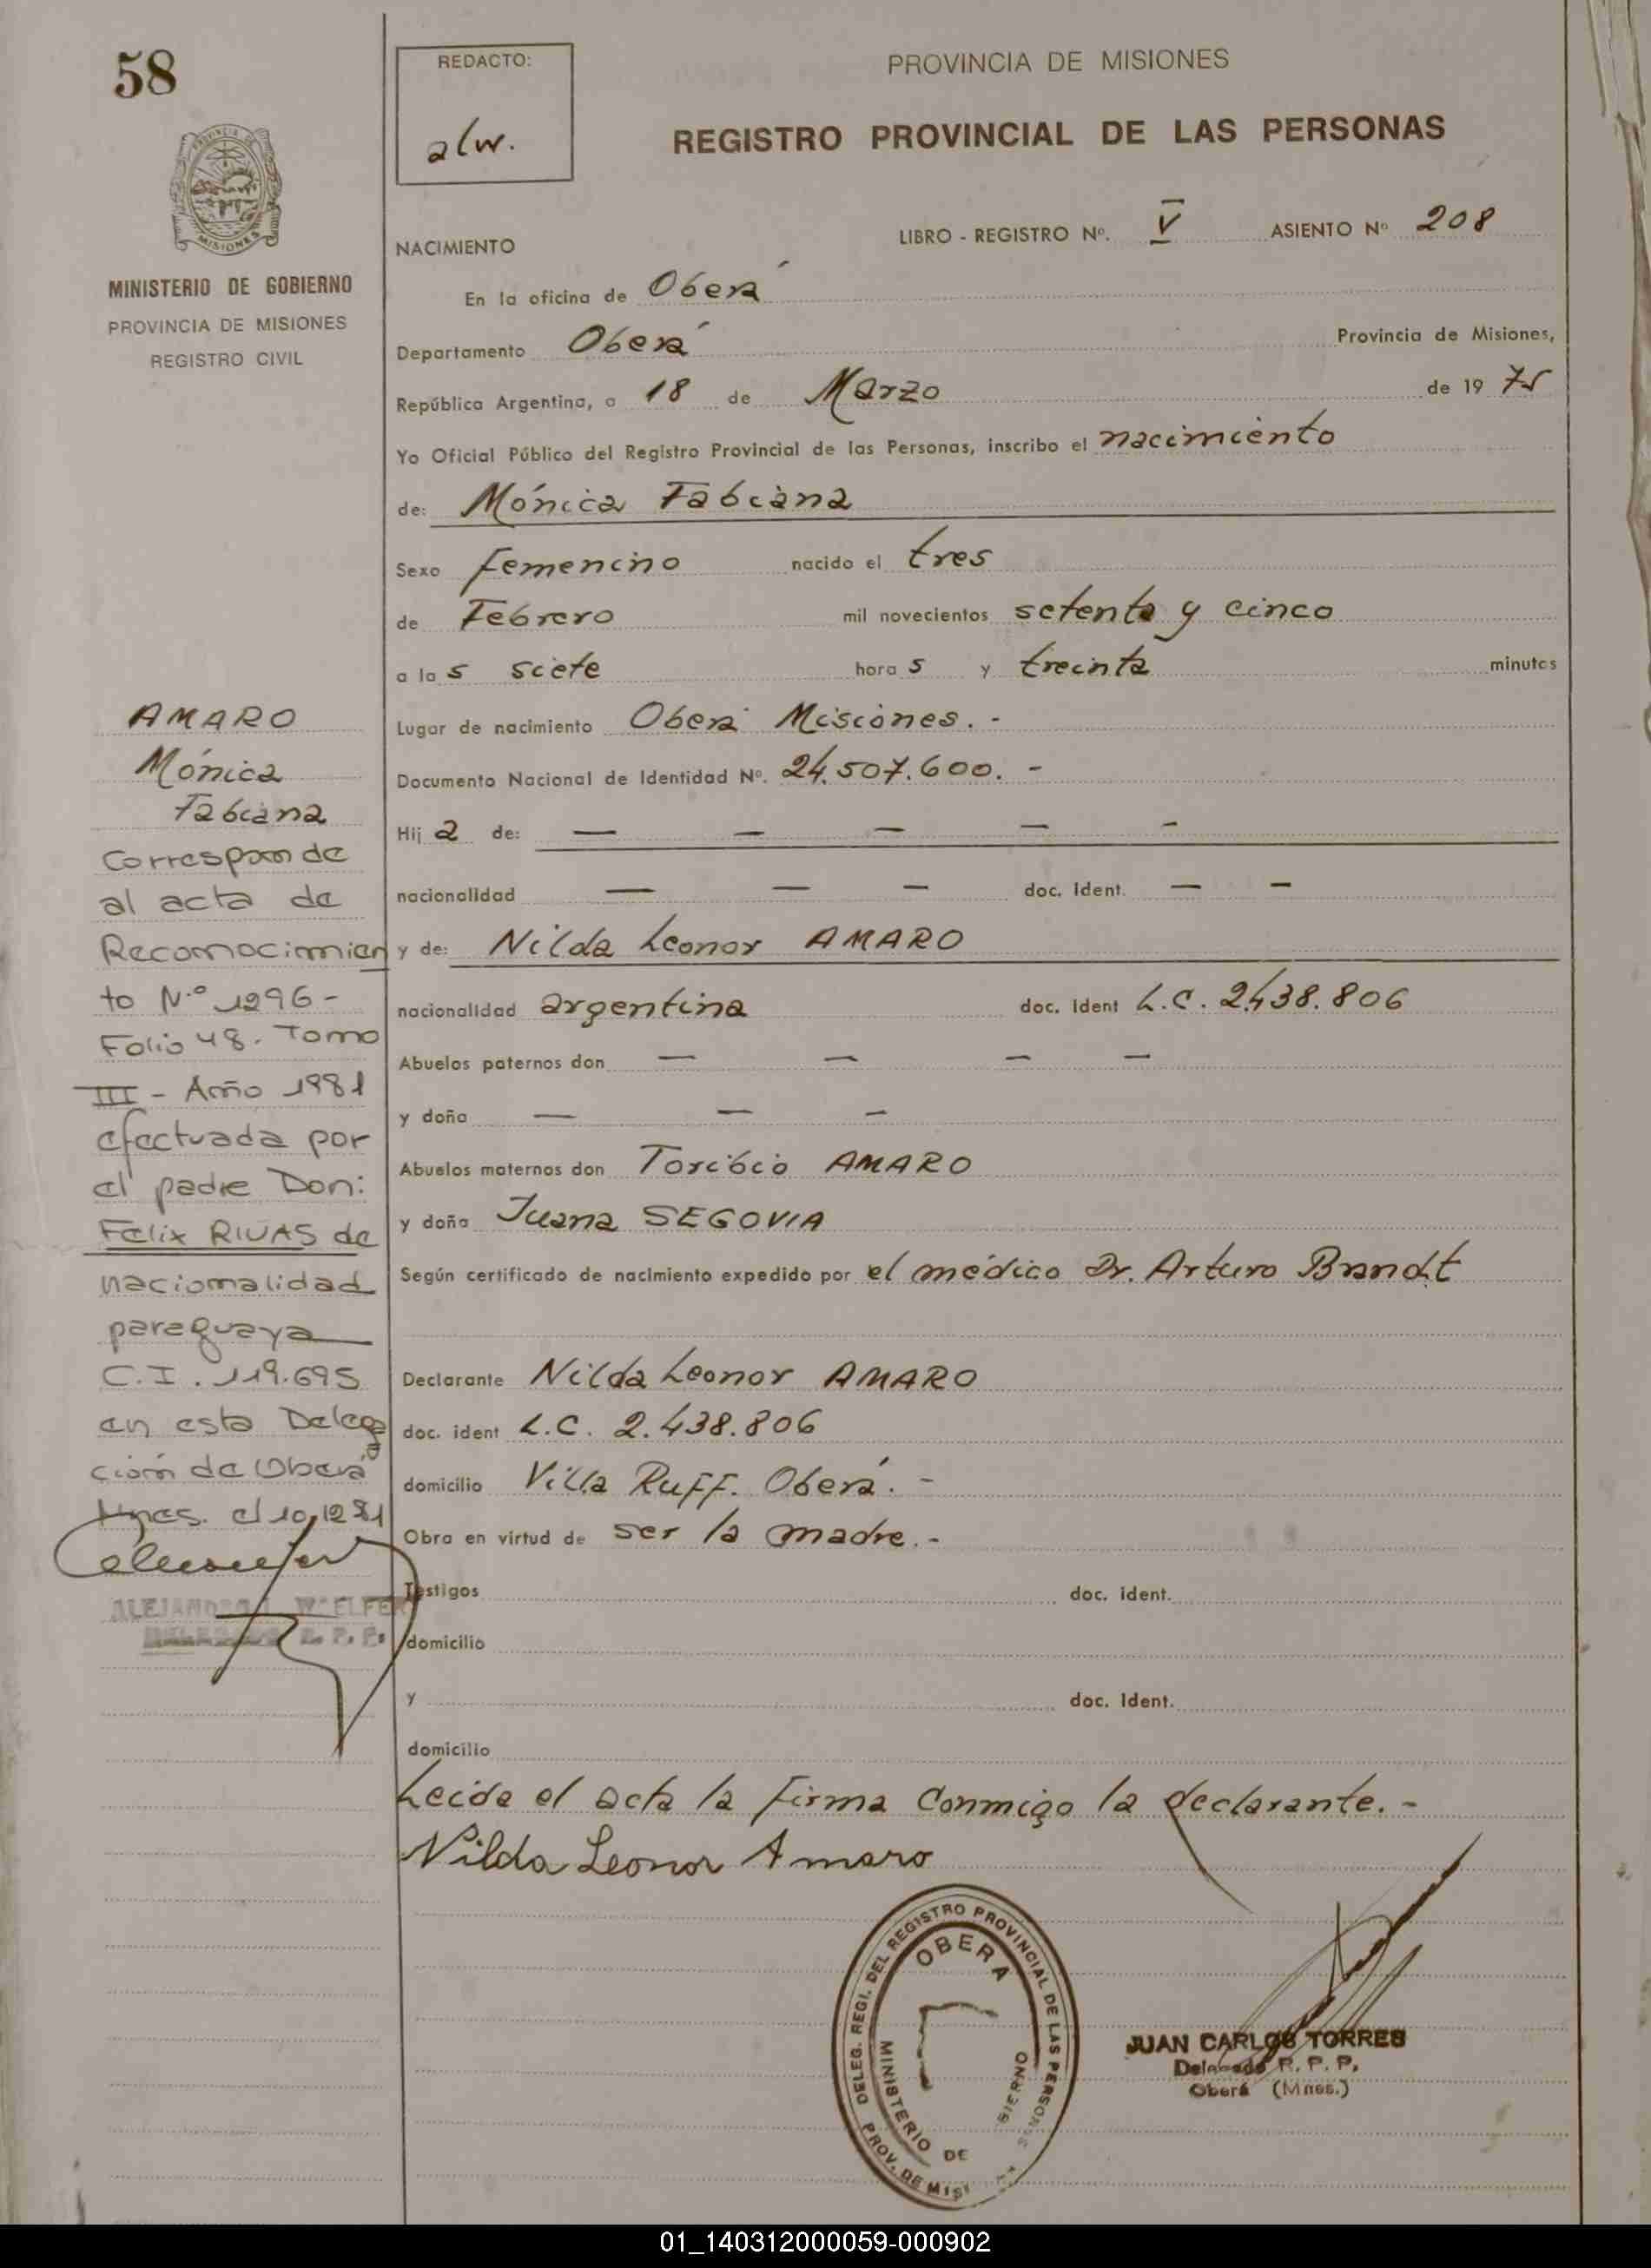 58
PROVINCIA DE
MISIONES
MINISTERIO DE GOBIERNO
PROVINCIA DE MISIONES
REGISTRO CIVIL
REDACTO:
alw.
PROVINCIA DE MISIONES
REGISTRO PROVINCIAL DE LAS PERSONAS
LIBRO - REGISTRO Nº. V ASIENTO Nº 208
NACIMIENTO
En la oficina de Oberá
Departamento Oberá Provincia de Misiones,
República Argentina, a 18 de Marzo de 19 75
Yo Oficial Público del Registro Provincial de las Personas, inscribo el nacimiento
de: Mónica Fabiana
Sexo Femenino nacido el tres
de Febrero mil novecientos setenta y cinco
a la s siete hora s y treinta minutos
Lugar de nacimiento Oberá Misiones. -
Documento Nacional de Identidad Nº. 24.507.600. -
Hij a de: — — — — -
nacionalidad — — — doc. ident. — —
y de: Nilda Leonor AMARO
nacionalidad argentina doc. ident L.C. 2.438.806
Abuelos paternos don — — — —
y doña — — —
Abuelos maternos don Toribio AMARO
y doña Juana SEGOVIA
Según certificado de nacimiento expedido por el médico Dr. Arturo Brandt
Declarante Nilda Leonor AMARO
doc. ident L.C. 2.438.806
domicilio Villa Ruff. Oberá. -
Obra en virtud de ser la madre. -
Testigos doc. ident.
domicilio
y doc. ident.
domicilio
Leida el acta la firma conmigo la declarante. -
Nilda Leonor Amaro
AMARO
Mónica
Fabiana
Corresponde
al acta de
Reconocimien
to N.º 1296 -
Folio 48. Tomo
III - Año 1981
efectuada por
el padre Don:
Felix RIVAS de
nacionalidad
paraguaya
C.I. 119.695
en esta Delega
ción de Oberá
Mnes. el 10,12 81
ALEJANDRO
R. P. P.
DELEG. REGI. DEL REGISTRO PROVINCIAL DE LAS PERSONAS
OBERA
MINISTERIO DE
BIERNO
PROV. DE MISI
JUAN CARLOS TORRES
Delegado R. P. P.
Oberá (Mnes.)
01_140312000059-000902